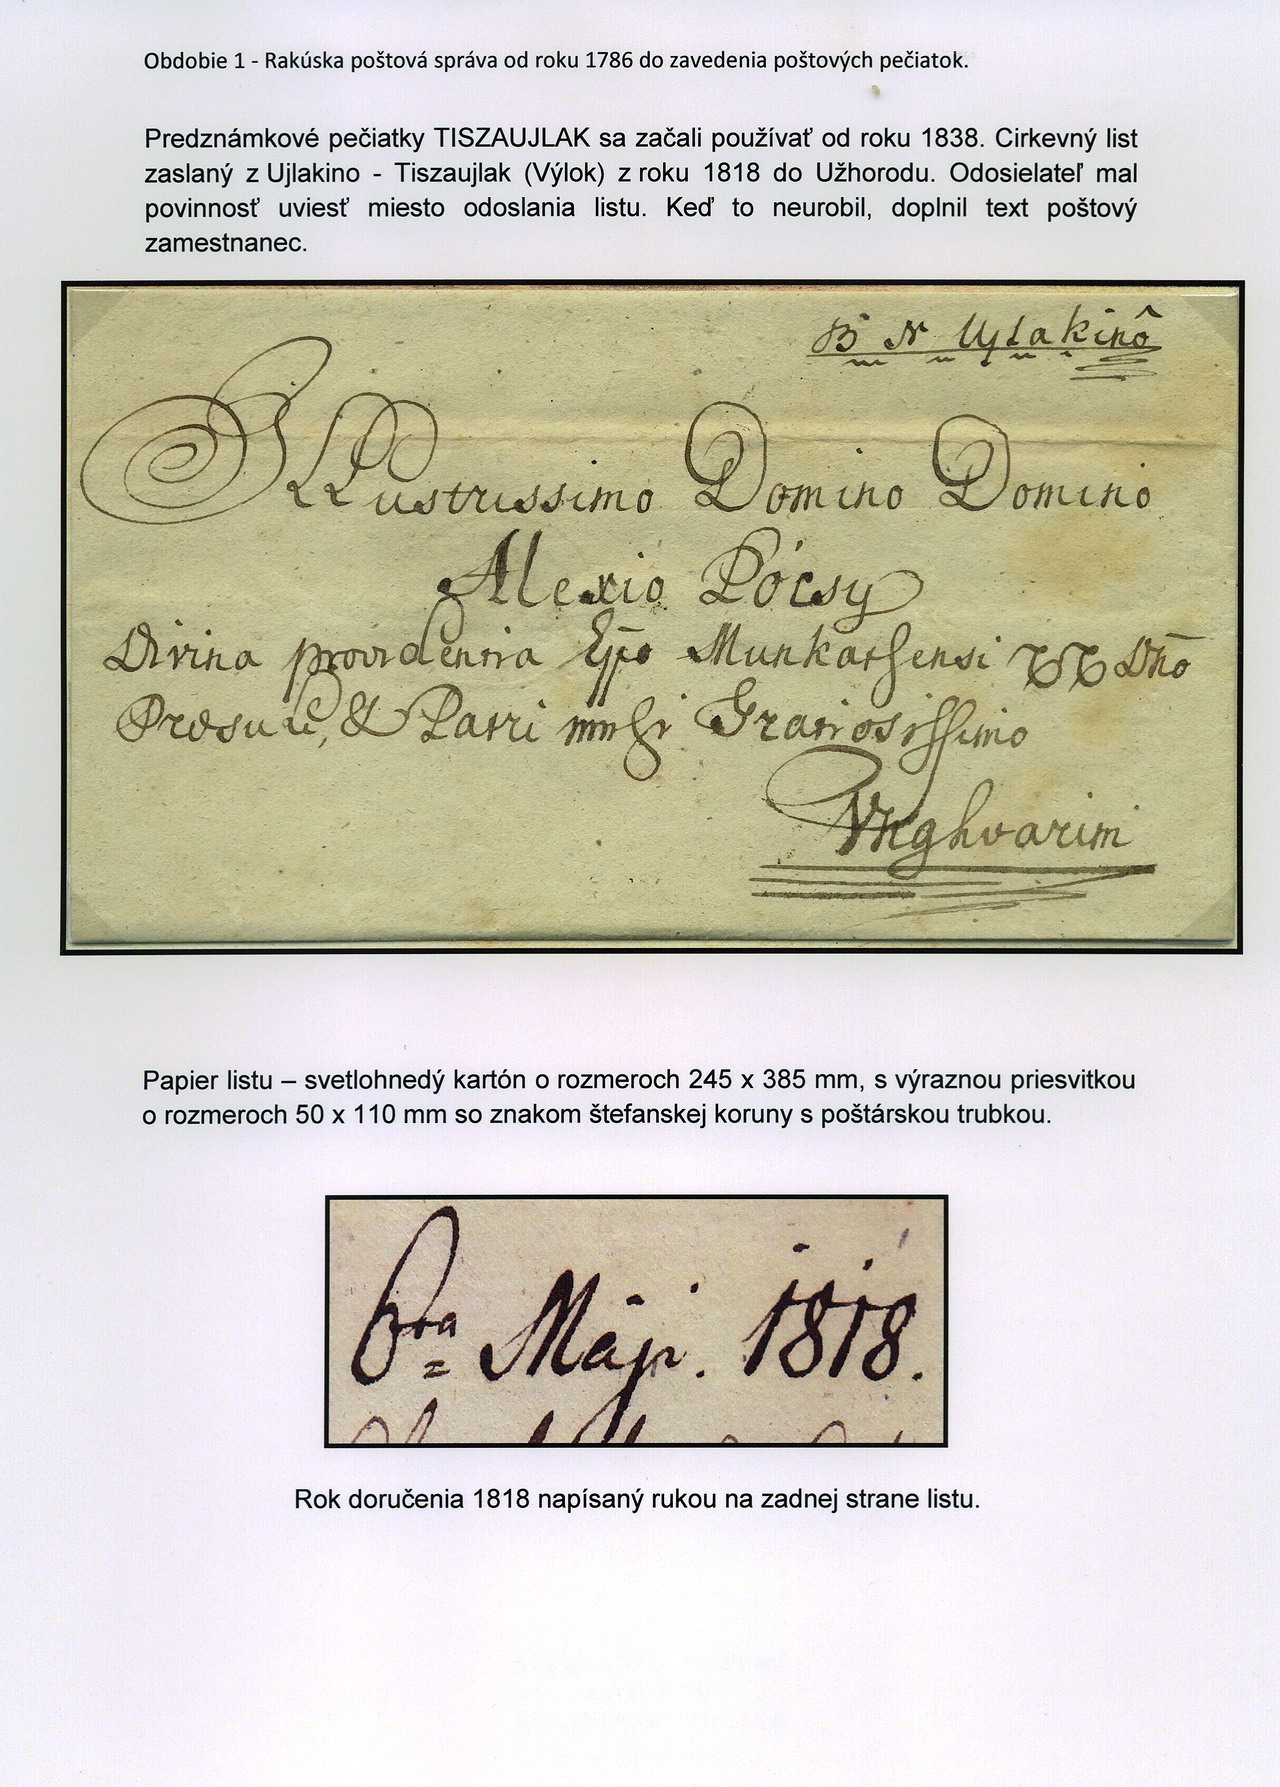 Obdobie 1 - Rakúska poštová správa od roku 1786 do zavedenia poštových pečiatok.
Predznámkové pečiatky TISZAUJLAK sa začali používať od roku 1838. Cirkevný list
zaslaný z Ujlakino - Tiszaujlak (Výlok) z roku 1818 do Užhorodu. Odosielateľ mal
povinnosť uviesť miesto odoslania listu. Keď to neurobil, doplnil text poštový
zamestnanec.
B N Ujlakinô
Illustrissimo Domino Domino
Alexio Pócsy
Divina providentia Eppo Munkacsensi Dño
Præsuli, & Patri mihi Gratiosissimo
Unghvarini
Papier listu – svetlohnedý kartón o rozmeroch 245 x 385 mm, s výraznou priesvitkou
o rozmeroch 50 x 110 mm so znakom štefanskej koruny s poštárskou trubkou.
6ta Máji. 1818.
Rok doručenia 1818 napísaný rukou na zadnej strane listu.